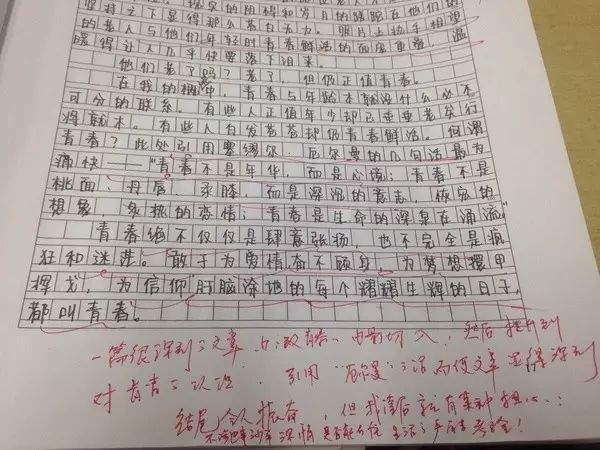 坚持之下显得那么苍白无力。照片上协手相望
的老人与他们年轻时青春鲜活的面庞重叠，温
暖得让人几乎快要落下泪来。
他们老了吗？老了，但仍正值青春。
在我的概念中，青春与年龄本就没什么必不
可分的联系。有些人正值年少却已垂垂老矣行
将就木。有些人白发苍苍却仍青春鲜活。何谓
青春？此处引用塞缪尔·厄尔曼的几句话最为
痛快——"青春不是年华，而是心境；青春不是
桃面、丹唇、柔膝，而是深沉的意志，恢宏的
想象，炙热的恋情；青春是生命的深泉在涌流。"
青春绝不仅仅是肆意张扬，也不完全是疯
狂和迷茫。敢于为爱情奋不顾身，为梦想擐甲
挥戈，为信仰肝脑涂地的每个熠熠生辉的日子，
都叫青春。
一篇很深刻的文章，以 电影切入，然后提升到
对青春的认识，引用"厄尔曼"的话而使文章显得深刻
结尾令人振奋，但我读后就有某种担心：